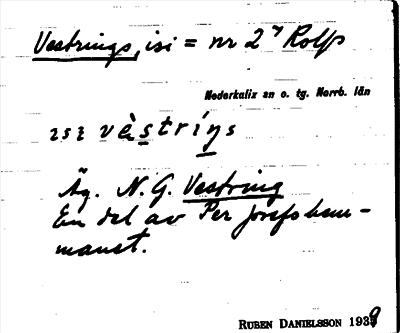 Vestrings, isi = nr 2⁷ Rolfs
Nederkalix sn o. tg. Norrb. län
ɪsɪ vèstrıŋs
Äg. N. G. Vestring
En del av Per Josefshem-
manet.
RUBEN DANIELSSON 1939